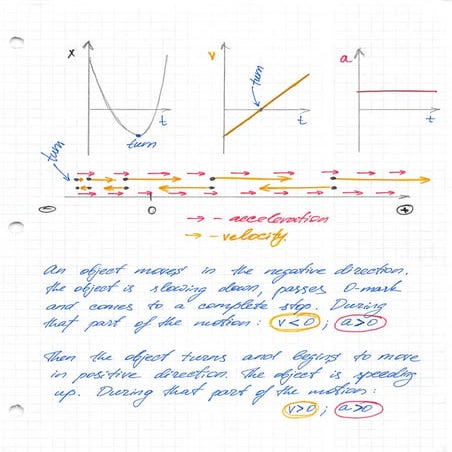 x v a
turn
t t t
turn
turn
⊖ 0 ⊕
→ - acceleration
→ - velocity.
An object moves in the negative direction.
The object is slowing down, passes 0-mark
and comes to a complete stop. During
that part of the motion: v<0 ; a>0
Then the object turns and begins to move
in positive direction. The object is speeding
up. During that part of the motion:
v>0 ; a>0